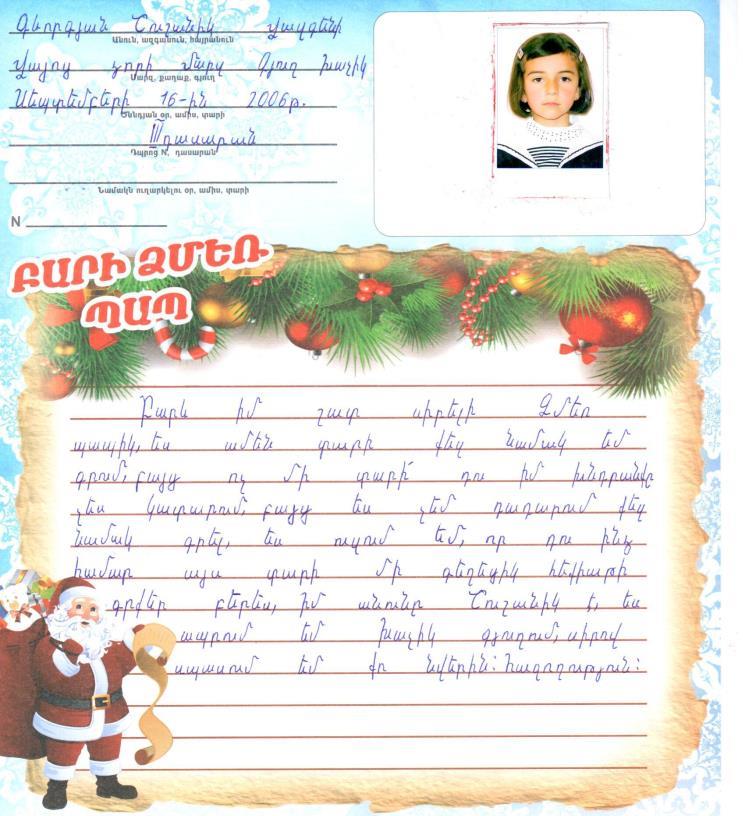 Գևորգյան Շուշանիկ Վազգենի
Անուն, ազգանուն, հայրանուն
Վայոց ձորի մարզ Գյուղ Խաչիկ
Մարզ, քաղաք, գյուղ
Սեպտեմբերի 16-ին 2006թ.
Ծննդյան օր, ամիս, տարի
III դասարան
Դպրոց N, դասարան
Նամակն ուղարկելու օր, ամիս, տարի
N
ԲԱՐԻ ՁՄԵՌ
ՊԱՊ
Բարև իմ շատ սիրելի Ձմեռ
պապիկ, ես ամեն տարի քեզ նամակ եմ
գրում, բայց ոչ մի տարի դու իմ խնդրանքը
չես կատարում, բայց ես չեմ դադարում քեզ
նամակ գրել, ես ուզում եմ, որ դու ինձ
համար այս տարի մի գեղեցիկ հեքիաթի
գրքեր բերես, իմ անունը Շուշանիկ է, ես
ապրում եմ Խաչիկ գյուղում, սիրով
սպասում եմ քո նվերին: Հաջողություն: